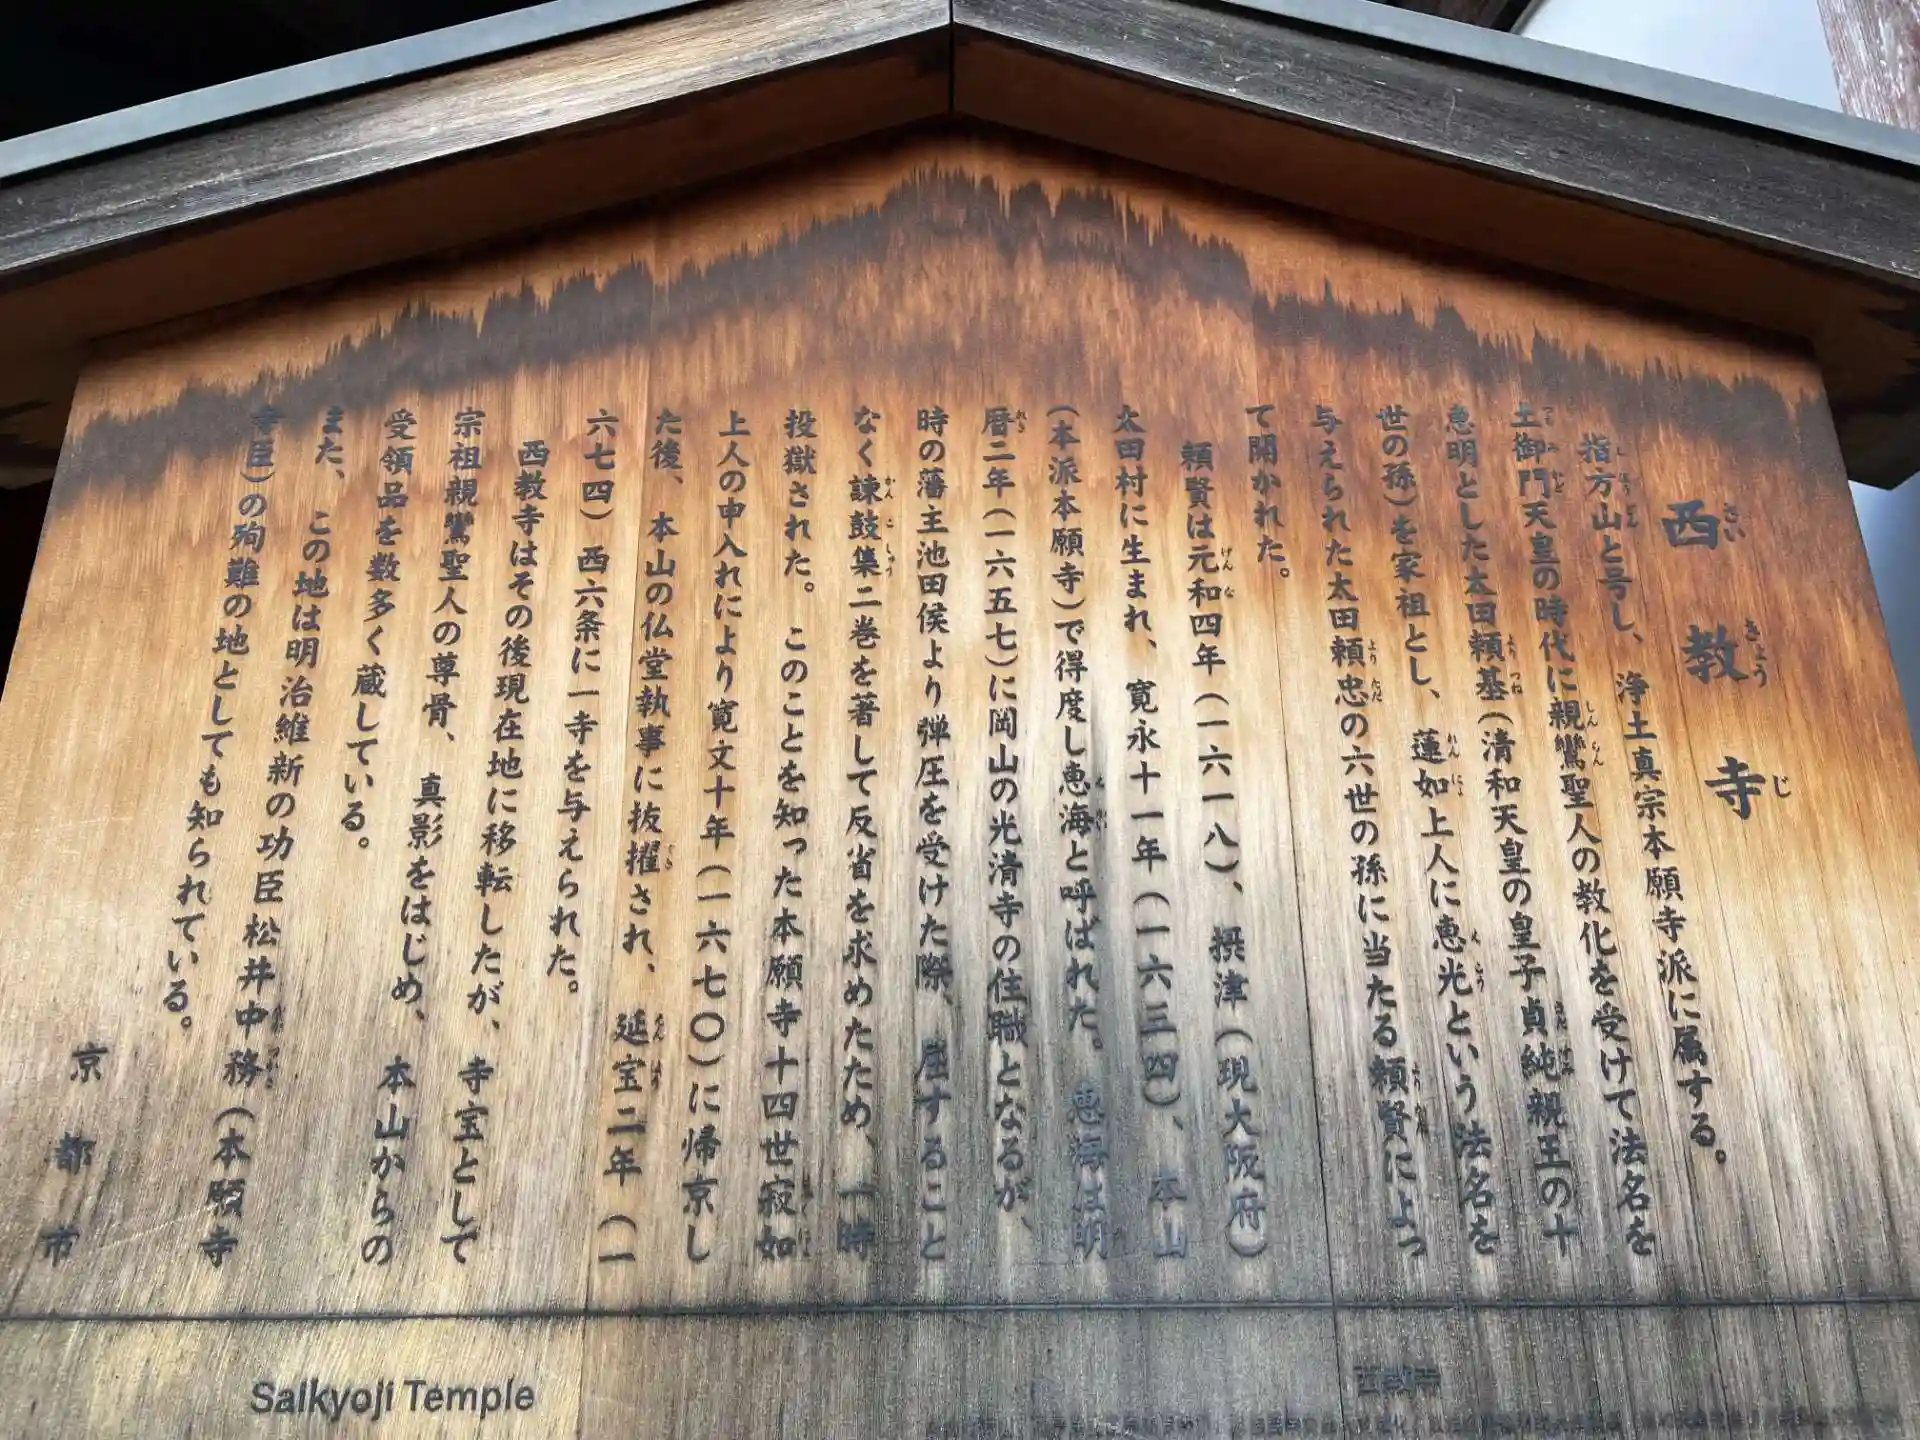 西教寺
指方山と号し、浄土真宗本願寺派に属する。
土御門天皇の時代に親鸞聖人の教化を受けて法名を
恵明とした太田頼基(清和天皇の皇子貞純親王の十
世の孫)を家祖とし、蓮如上人に恵光という法名を
与えられた太田頼忠の六世の孫に当たる頼賢によっ
て開かれた。
頼賢は元和四年(一六一八)、摂津(現大阪府)
太田村に生まれ、寛永十一年(一六三四)、本山
(本派本願寺)で得度し恵海と呼ばれた。恵海は明
暦二年(一六五七)に岡山の光清寺の住職となるが、
時の藩主池田侯より弾圧を受けた際、屈すること
なく諌鼓集二巻を著して反省を求めたため、一時
投獄された。このことを知った本願寺十四世寂如
上人の申入れにより寛文十年(一六七〇)に帰京し
た後、本山の仏堂執事に抜擢され、延宝二年(一
六七四)西六条に一寺を与えられた。
西教寺はその後現在地に移転したが、寺宝として
宗祖親鸞聖人の尊骨、真影をはじめ、本山からの
受領品を数多く蔵している。
また、この地は明治維新の功臣松井中務(本願寺
寺臣)の殉難の地としても知られている。
京都市
Saikyoji Temple
西教寺